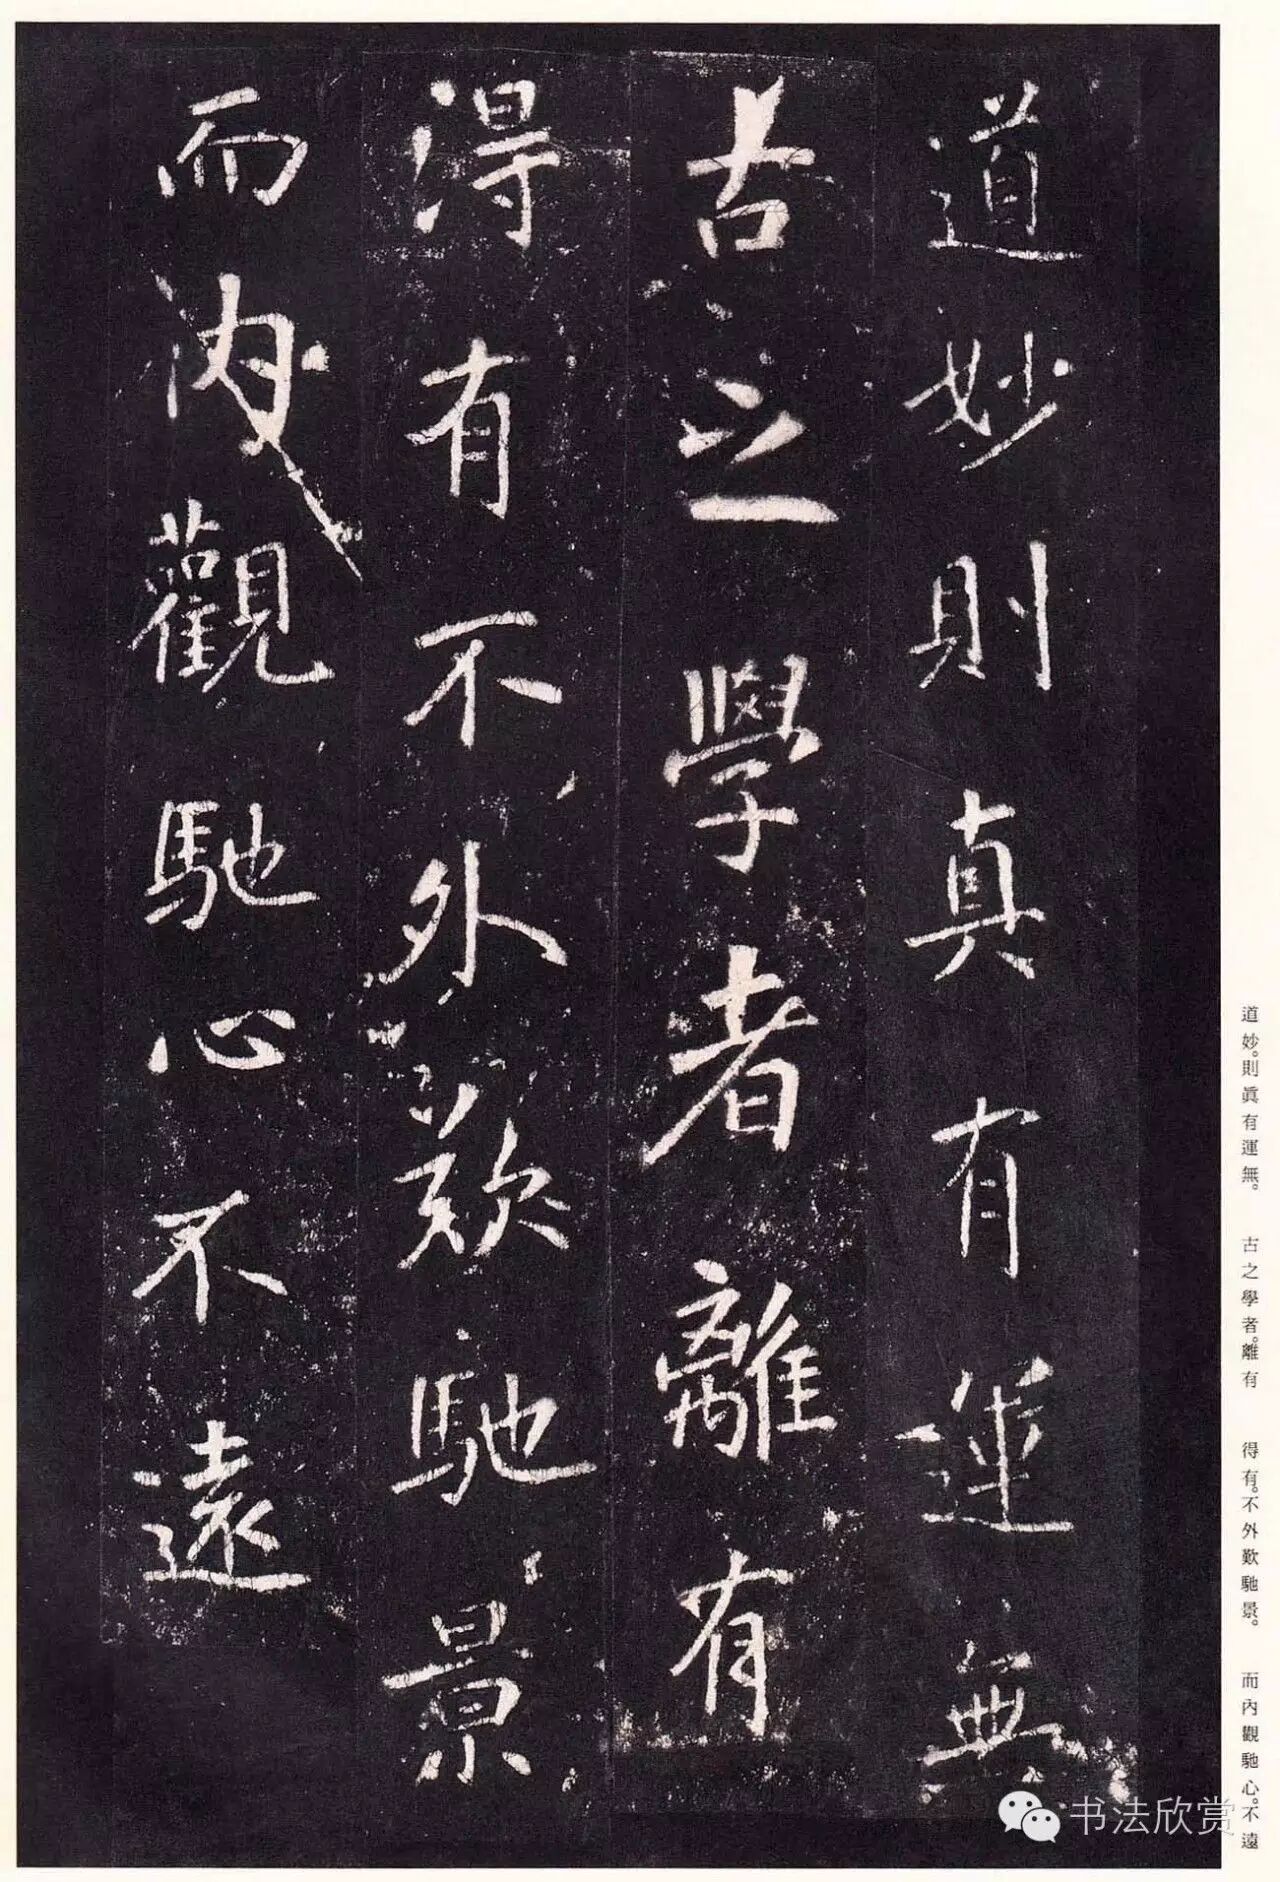 道妙則真有運無
古之學者離有
得有不外歎馳景
而內觀馳心不遠
道妙。則眞有運無。 古之學者。離有 得有。不外歎馳景。 而內觀馳心。不遠
书法欣赏